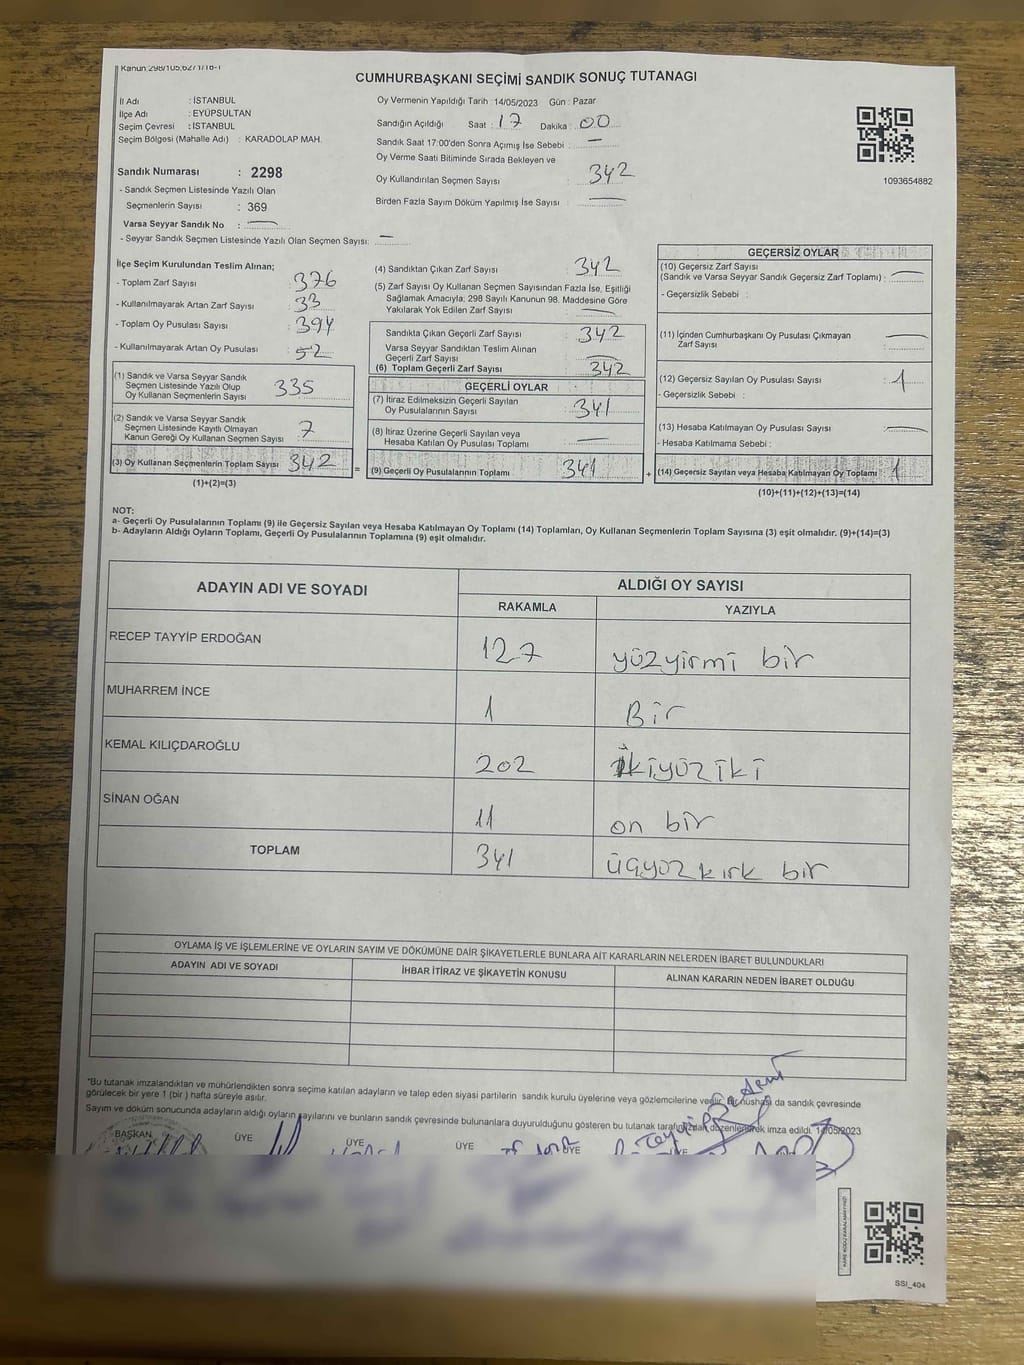 Kanun:298/105,6271/16-1
CUMHURBAŞKANI SEÇİMİ SANDIK SONUÇ TUTANAGI
İl Adı : İSTANBUL
İlçe Adı : EYÜPSULTAN
Seçim Çevresi : İSTANBUL
Seçim Bölgesi (Mahalle Adı) : KARADOLAP MAH.
Oy Vermenin Yapıldığı Tarih : 14/05/2023 Gün : Pazar
Sandığın Açıldığı Saat : 17 Dakika : 00
Sandık Saat 17:00'den Sonra Açımış İse Sebebi : —
Oy Verme Saati Bitiminde Sırada Bekleyen ve
Oy Kullandırılan Seçmen Sayısı : 342
Birden Fazla Sayım Döküm Yapılmış İse Sayısı : —
1093654882
Sandık Numarası : 2298
- Sandık Seçmen Listesinde Yazılı Olan
Seçmenlerin Sayısı : 369
Varsa Seyyar Sandık No : —
- Seyyar Sandık Seçmen Listesinde Yazılı Olan Seçmen Sayısı: —
İlçe Seçim Kurulundan Teslim Alınan;
- Toplam Zarf Sayısı : 376
- Kullanılmayarak Artan Zarf Sayısı : 33
- Toplam Oy Pusulası Sayısı : 394
- Kullanılmayarak Artan Oy Pusulası : 52
(1) Sandık ve Varsa Seyyar Sandık
Seçmen Listesinde Yazılı Olup
Oy Kullanan Seçmenlerin Sayısı 335
(2) Sandık ve Varsa Seyyar Sandık
Seçmen Listesinde Kayıtlı Olmayan
Kanun Gereği Oy Kullanan Seçmen Sayısı : 7
(3) Oy Kullanan Seçmenlerin Toplam Sayısı 342
(1)+(2)=(3)
(4) Sandıktan Çıkan Zarf Sayısı 342
(5) Zarf Sayısı Oy Kullanan Seçmen Sayısından Fazla İse, Eşitliği
Sağlamak Amacıyla; 298 Sayılı Kanunun 98. Maddesine Göre
Yakılarak Yok Edilen Zarf Sayısı : —
Sandıkta Çıkan Geçerli Zarf Sayısı : 342
Varsa Seyyar Sandıktan Teslim Alınan
Geçerli Zarf Sayısı : —
(6) Toplam Geçerli Zarf Sayısı : 342
=
GEÇERLİ OYLAR
(7) İtiraz Edilmeksizin Geçerli Sayılan
Oy Pusulalarının Sayısı : 341
(8) İtiraz Üzerine Geçerli Sayılan veya
Hesaba Katılan Oy Pusulası Toplamı : —
(9) Geçerli Oy Pusulalarının Toplamı 341
+
GEÇERSİZ OYLAR
(10) Geçersiz Zarf Sayısı
(Sandık ve Varsa Seyyar Sandık Geçersiz Zarf Toplamı) : —
- Geçersizlik Sebebi :
(11) İçinden Cumhurbaşkanı Oy Pusulası Çıkmayan
Zarf Sayısı : —
(12) Geçersiz Sayılan Oy Pusulası Sayısı : 1
- Geçersizlik Sebebi :
(13) Hesaba Katılmayan Oy Pusulası Sayısı : —
- Hesaba Katılmama Sebebi :
(14) Geçersiz Sayılan veya Hesaba Katılmayan Oy Toplamı 1
(10)+(11)+(12)+(13)=(14)
NOT:
a- Geçerli Oy Pusulalarının Toplamı (9) ile Geçersiz Sayılan veya Hesaba Katılmayan Oy Toplamı (14) Toplamları, Oy Kullanan Seçmenlerin Toplam Sayısına (3) eşit olmalıdır. (9)+(14)=(3)
b- Adayların Aldığı Oyların Toplamı, Geçerli Oy Pusulalarının Toplamına (9) eşit olmalıdır.
ADAYIN ADI VE SOYADI ALDIĞI OY SAYISI
RAKAMLA YAZIYLA
RECEP TAYYİP ERDOĞAN 127 yüzyirmi bir
MUHARREM İNCE 1 Bir
KEMAL KILIÇDAROĞLU 202 ikiyüz iki
SİNAN OĞAN 11 on bir
TOPLAM 341 üçyüz kırk bir
OYLAMA İŞ VE İŞLEMLERİNE VE OYLARIN SAYIM VE DÖKÜMÜNE DAİR ŞİKAYETLERLE BUNLARA AİT KARARLARIN NELERDEN İBARET BULUNDUKLARI
ADAYIN ADI VE SOYADI İHBAR İTİRAZ VE ŞİKAYETİN KONUSU ALINAN KARARIN NEDEN İBARET OLDUĞU
*Bu tutanak imzalandıktan ve mühürlendikten sonra seçime katılan adayların ve talep eden siyasi partilerin sandık kurulu üyelerine veya gözlemcilerine verilir. Bir nüshası da sandık çevresinde
görülecek bir yere 1 (bir ) hafta süreyle asılır.
Sayım ve döküm sonucunda adayların aldığı oyların sayılarını ve bunların sandık çevresinde bulunanlara duyurulduğunu gösteren bu tutanak tarafımızdan düzenlenerek imza edildi. 14/05/2023
BAŞKAN ÜYE ÜYE ÜYE ÜYE ÜYE
SSI_404